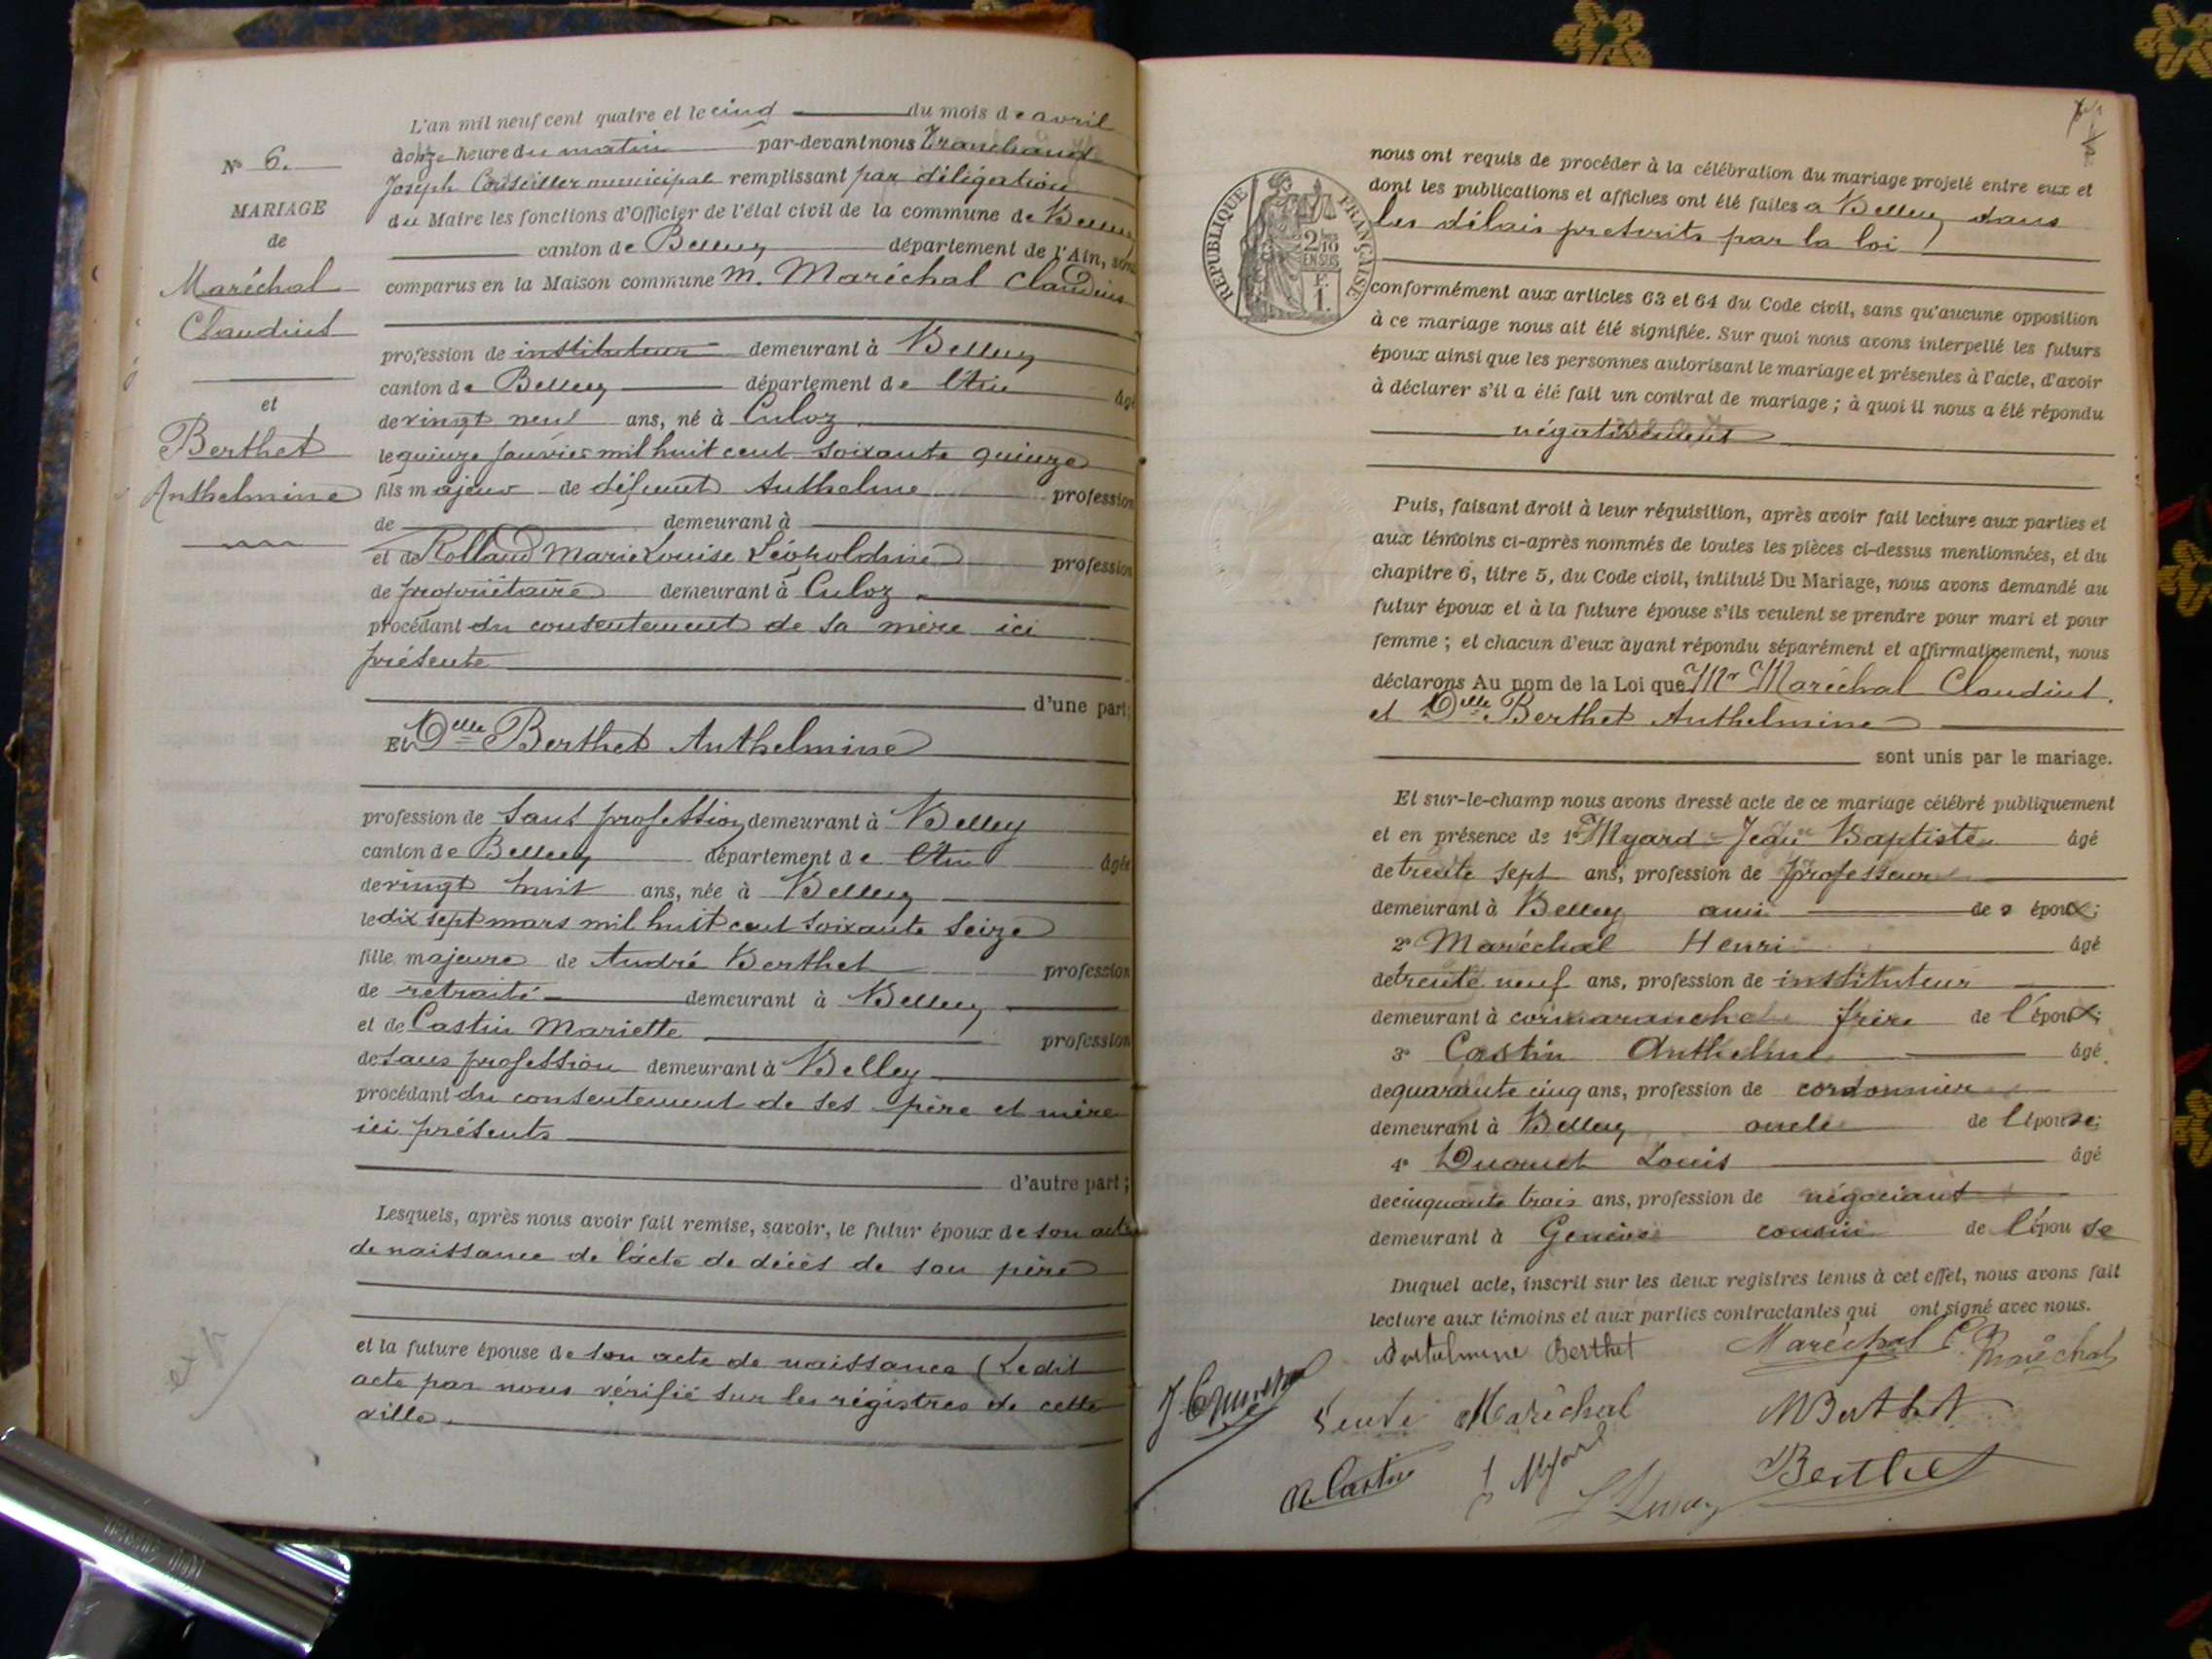 L'an mil neuf cent quatre et le cinq du mois de avril
à onze heure du matin par-devant nous Tranchand
Joseph Conseiller municipal remplissant par délégation
du Maire les fonctions d'Officier de l'état civil de la commune de Belley
canton de Belley département de l'Ain, sont
comparus en la Maison commune M. Maréchal Claudius
profession de instituteur demeurant à Belley
canton de Belley département de l'Ain âgé
de vingt neuf ans, né à Culoz
le quinze janvier mil huit cent soixante quinze
fils majeur de défunt Anthelme profession
de demeurant à
et de Rolland Marie Louise Léopoldine profession
de propriétaire demeurant à Culoz
procédant du consentement de sa mère ici
présente
d'une part;
Et Delle Berthet Anthelmine
profession de sans profession demeurant à Belley
canton de Belley département de l'Ain âgée
de vingt huit ans, née à Belley
le dix sept mars mil huit cent soixante seize
fille majeure de André Berthet profession
de retraité demeurant à Belley
et de Castin Mariette profession
de sans profession demeurant à Belley
procédant du consentement de ses père et mère
ici présents
d'autre part;
Lesquels, après nous avoir fait remise, savoir, le futur époux de son acte
de naissance de l'acte de décès de son père
et la future épouse de son acte de naissance (Ledit
acte par nous vérifié sur les régistres de cette
ville.
N° 6.
MARIAGE
de
Maréchal
Claudius
et
Berthet
Anthelmine
nous ont requis de procéder à la célébration du mariage projeté entre eux et
dont les publications et affiches ont été faites à Belley dans
les délais prescrits par la loi
conformément aux articles 63 et 64 du Code civil, sans qu'aucune opposition
à ce mariage nous ait été signifiée. Sur quoi nous avons interpellé les futurs
époux ainsi que les personnes autorisant le mariage et présentes à l'acte, d'avoir
à déclarer s'il a été fait un contrat de mariage; à quoi il nous a été répondu
négativement
Puis, faisant droit à leur réquisition, après avoir fait lecture aux parties et
aux témoins ci-après nommés de toutes les pièces ci-dessus mentionnées, et du
chapitre 6, titre 5, du Code civil, intitulé Du Mariage, nous avons demandé au
futur époux et à la future épouse s'ils veulent se prendre pour mari et pour
femme; et chacun d'eux ayant répondu séparément et affirmativement, nous
déclarons Au nom de la Loi que Mr Maréchal Claudius.
et Delle Berthet Anthelmine
sont unis par le mariage.
Et sur-le-champ nous avons dressé acte de ce mariage célébré publiquement
et en présence de 1° Myard Jean Baptiste âgé
de trente sept ans, profession de professeur
demeurant à Belley ami de époux;
2° Maréchal Henri âgé
de trente neuf ans, profession de instituteur
demeurant à cormaranche frère de l'époux;
3° Castin Anthelme âgé
de quarante cinq ans, profession de cordonnier
demeurant à Belley oncle de l'épouse;
4° Louis âgé
de cinquante trois ans, profession de négociant
demeurant à Genève cousin de l'épouse
Duquel acte, inscrit sur les deux registres tenus à cet effet, nous avons fait
lecture aux témoins et aux parties contractantes qui ont signé avec nous.
Anthelmine Berthet Maréchal C. Maréchal
Veuve Maréchal M Berthet
A Castin J Myard Berthet
RÉPUBLIQUE FRANÇAISE
2/10
EN SUS
F.
1.